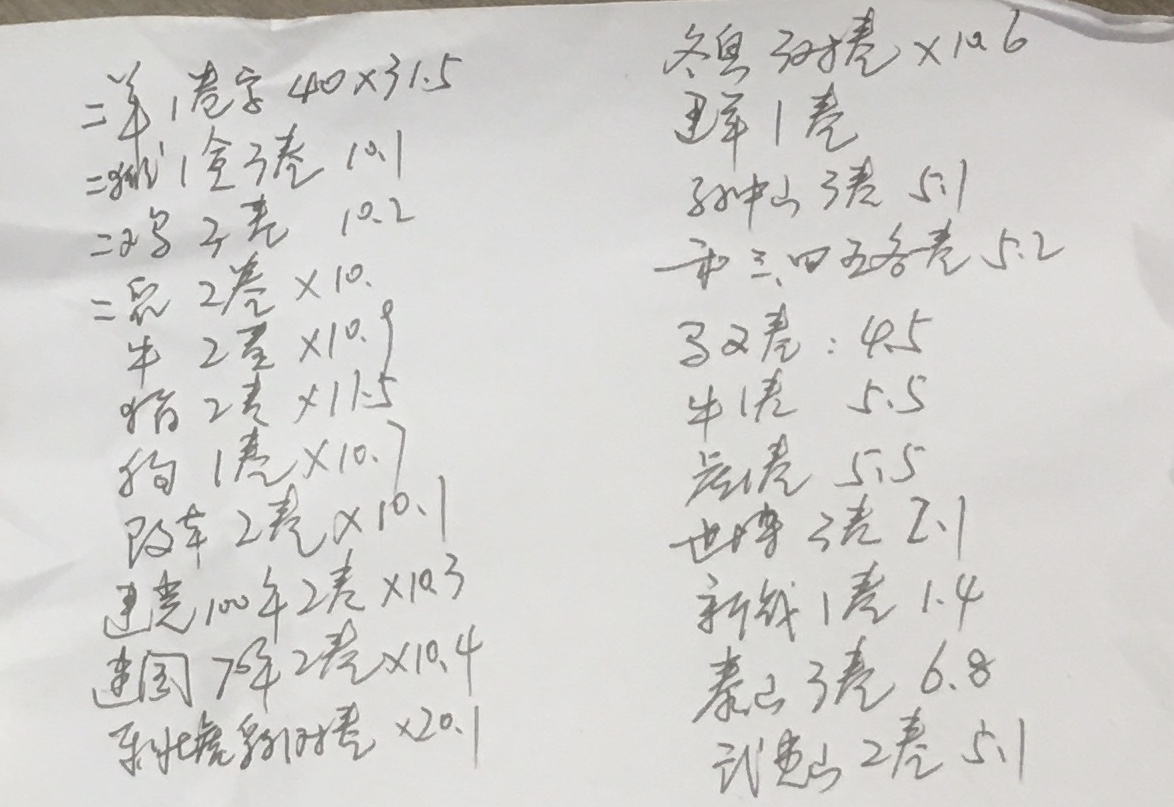 二羊1卷字 40×31.5
二猴1盒3卷 10.1
二鸡 2卷 10.2
二鼠 2卷 ×10.
牛 2卷 ×10.9
猪 2卷 ×11.5
狗 1卷×10.7
改革 2卷×10.1
建党100年2卷×10.3
建国70年2卷×10.4
东北虎豹1对卷 ×20.1
冬奥 3对卷 ×10.6
建军1卷
孙中山 3卷 5.1
和三、四五各卷 5.2
马2卷:4.5
牛1卷 5.5
虎1卷 5.5
世博 3卷 2.1
新钱1卷 1.4
泰山3卷 6.8
武夷山2卷 5.1